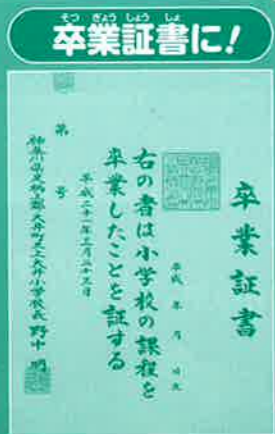 そつ ぎょう しょう しょ
卒業証書に!
卒業証書
平成 年 月 日生
右の者は小学校の課程を
卒業したことを証する
平成二十一年三月二十三日
第 号
神奈川県足柄上郡大井町立上大井小学校長 野中 明